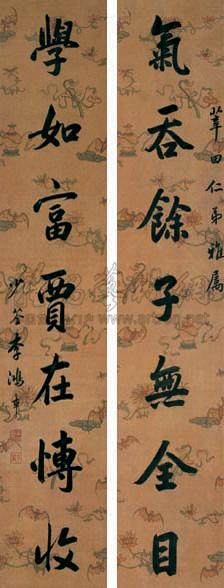 莘田仁弟雅屬
氣吞餘子無全目
學如富賈在愽收
少荃李鴻章